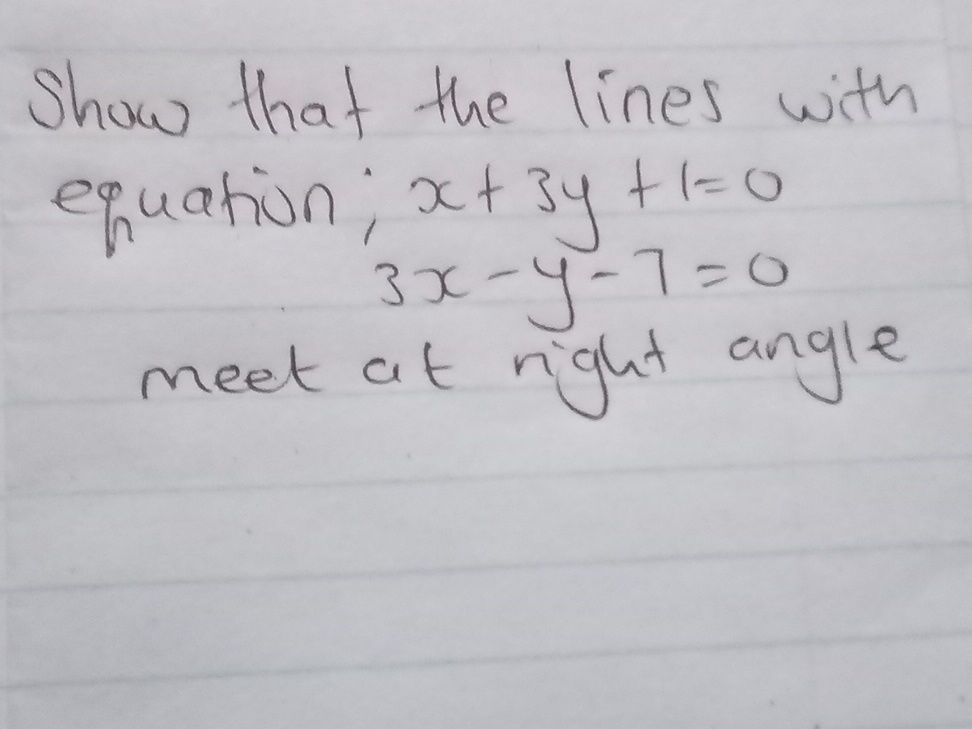 Show that the lines with
equation; x + 3y + 1 = 0
3x - y - 7 = 0
meet at right angle